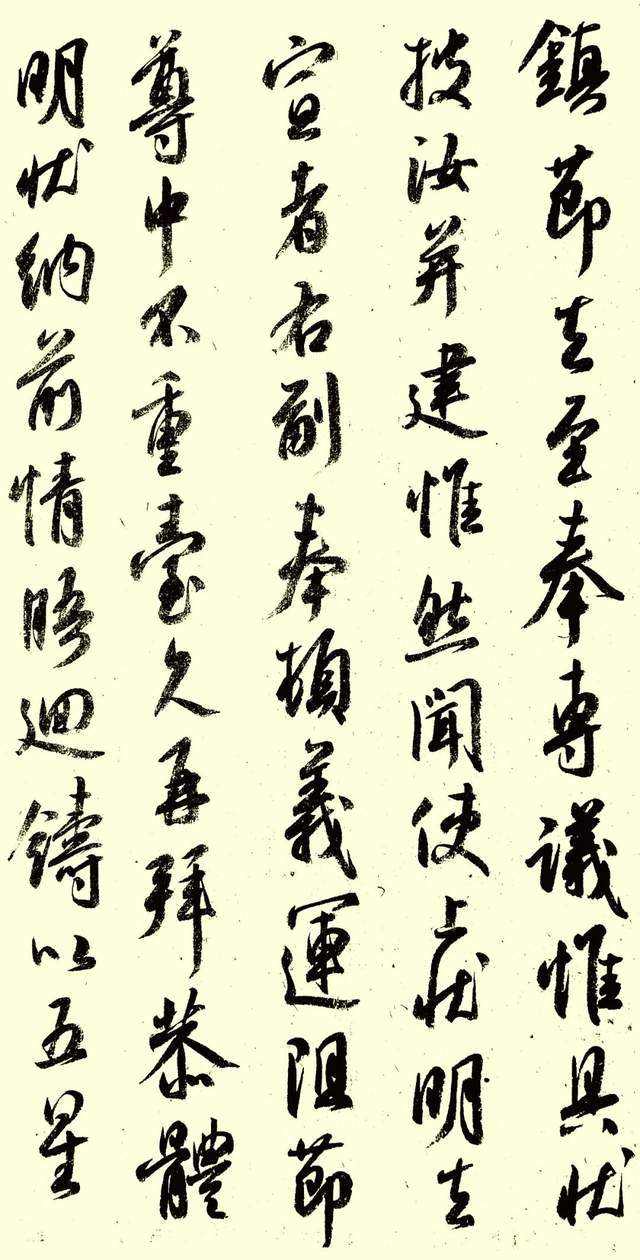 鎮節立至奉專議惟具狀
披汝并建惟然聞使上狀明立
宣者右副奉頓義運阻節
尊中不重臺久再拜恭體
明狀納前情晤迴鑄以五星